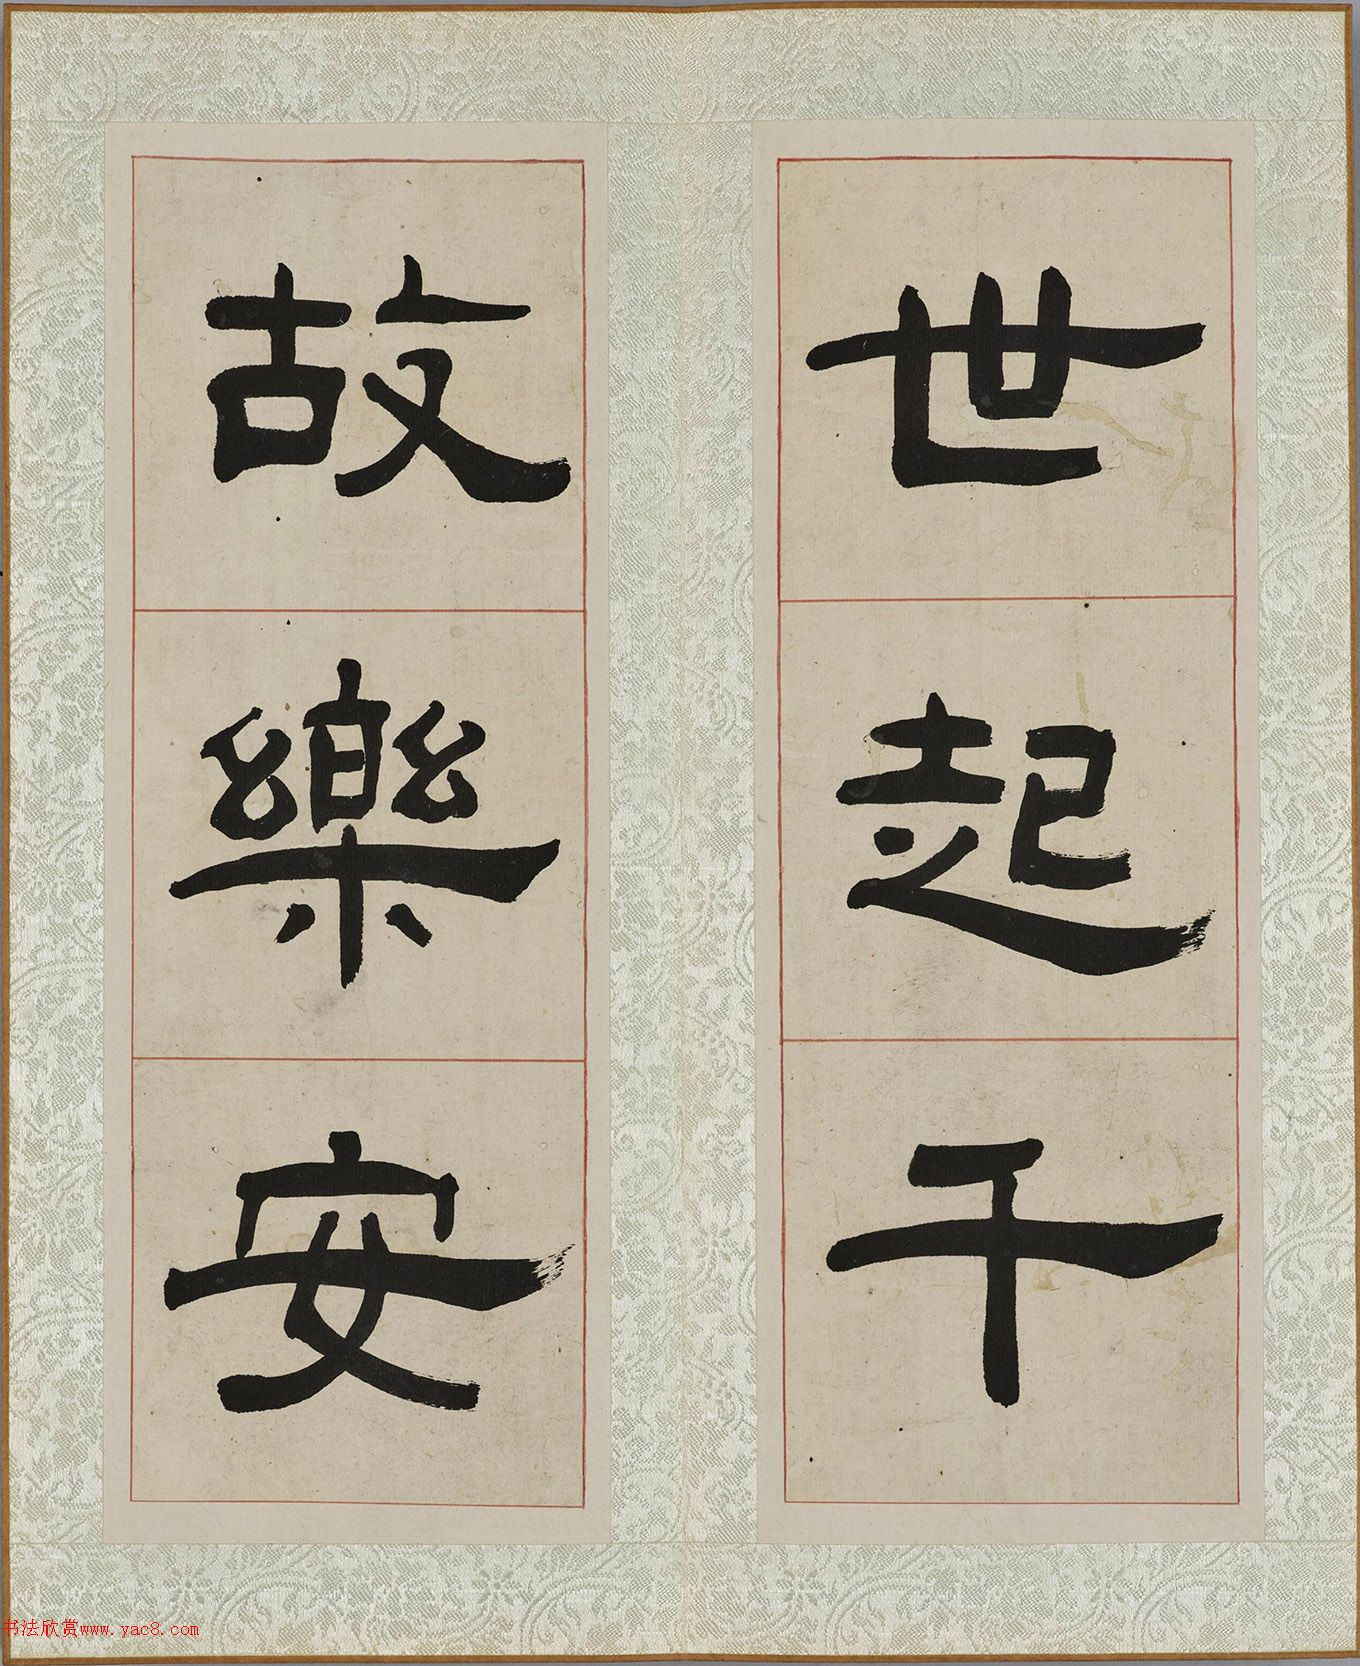 世起千
故樂安
书法欣赏www.yac8.com